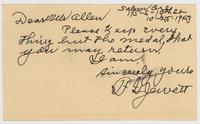 Salem Ore
195-S-18th St
Dear Mr Allen 10-25-1963
Please Keep every
thing but the medal, that
you may return.
I am,
Sincerely yours
Jewett